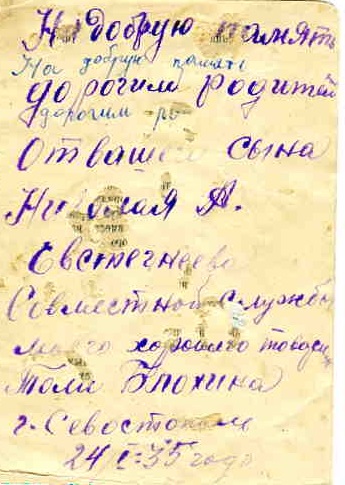 На добрую память
На добрую память
дорогим родителям
дорогим ро
От вашего сына
Николая А.
Евстегнеева
Совместной службы
моего хорошего товарища
Толи Блохина
г. Севостополь
24 I-35 года